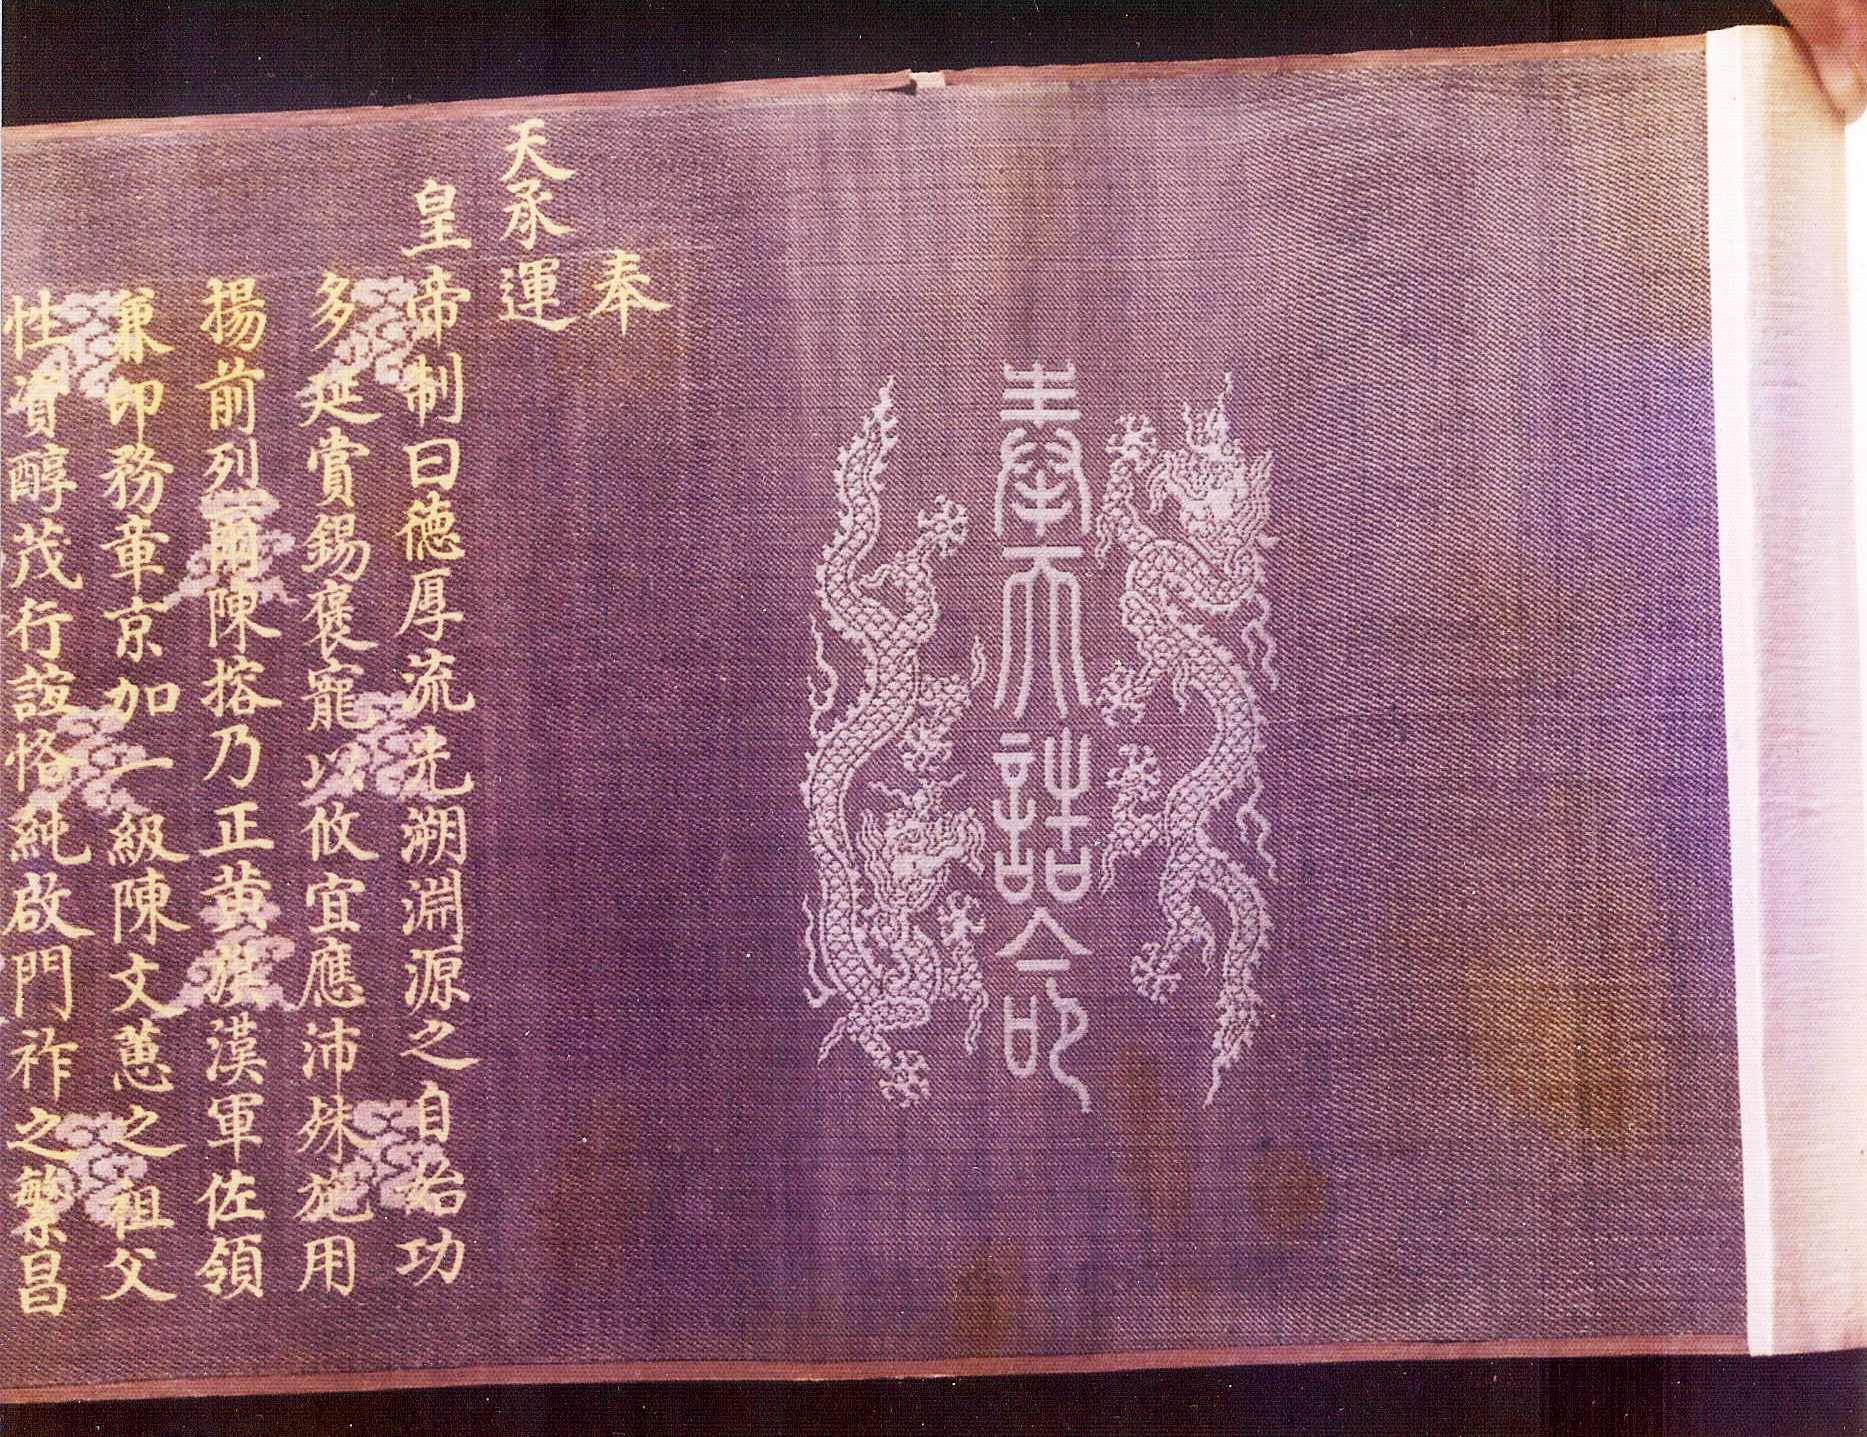 奉天誥命
奉
天承運
皇帝制曰德厚流光溯淵源之自始功
多延賞錫褒寵以攸宜應沛殊施用
揚前列爾陳榕乃正黃旗漢軍佐領
兼印務章京加一級陳文蕙之祖父
性資醇茂行誼恪純啟門祚之繁昌